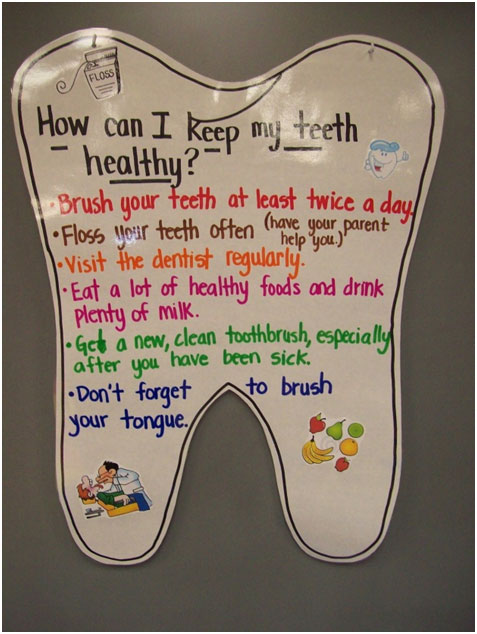 FLOSS
How can I keep my teeth
healthy?
• Brush your teeth at least twice a day.
• Floss your teeth often (have your parent
help you.)
• Visit the dentist regularly.
• Eat a lot of healthy foods and drink
plenty of milk.
• Get a new, clean toothbrush, especially
after you have been sick.
• Don't forget to brush
your tongue.